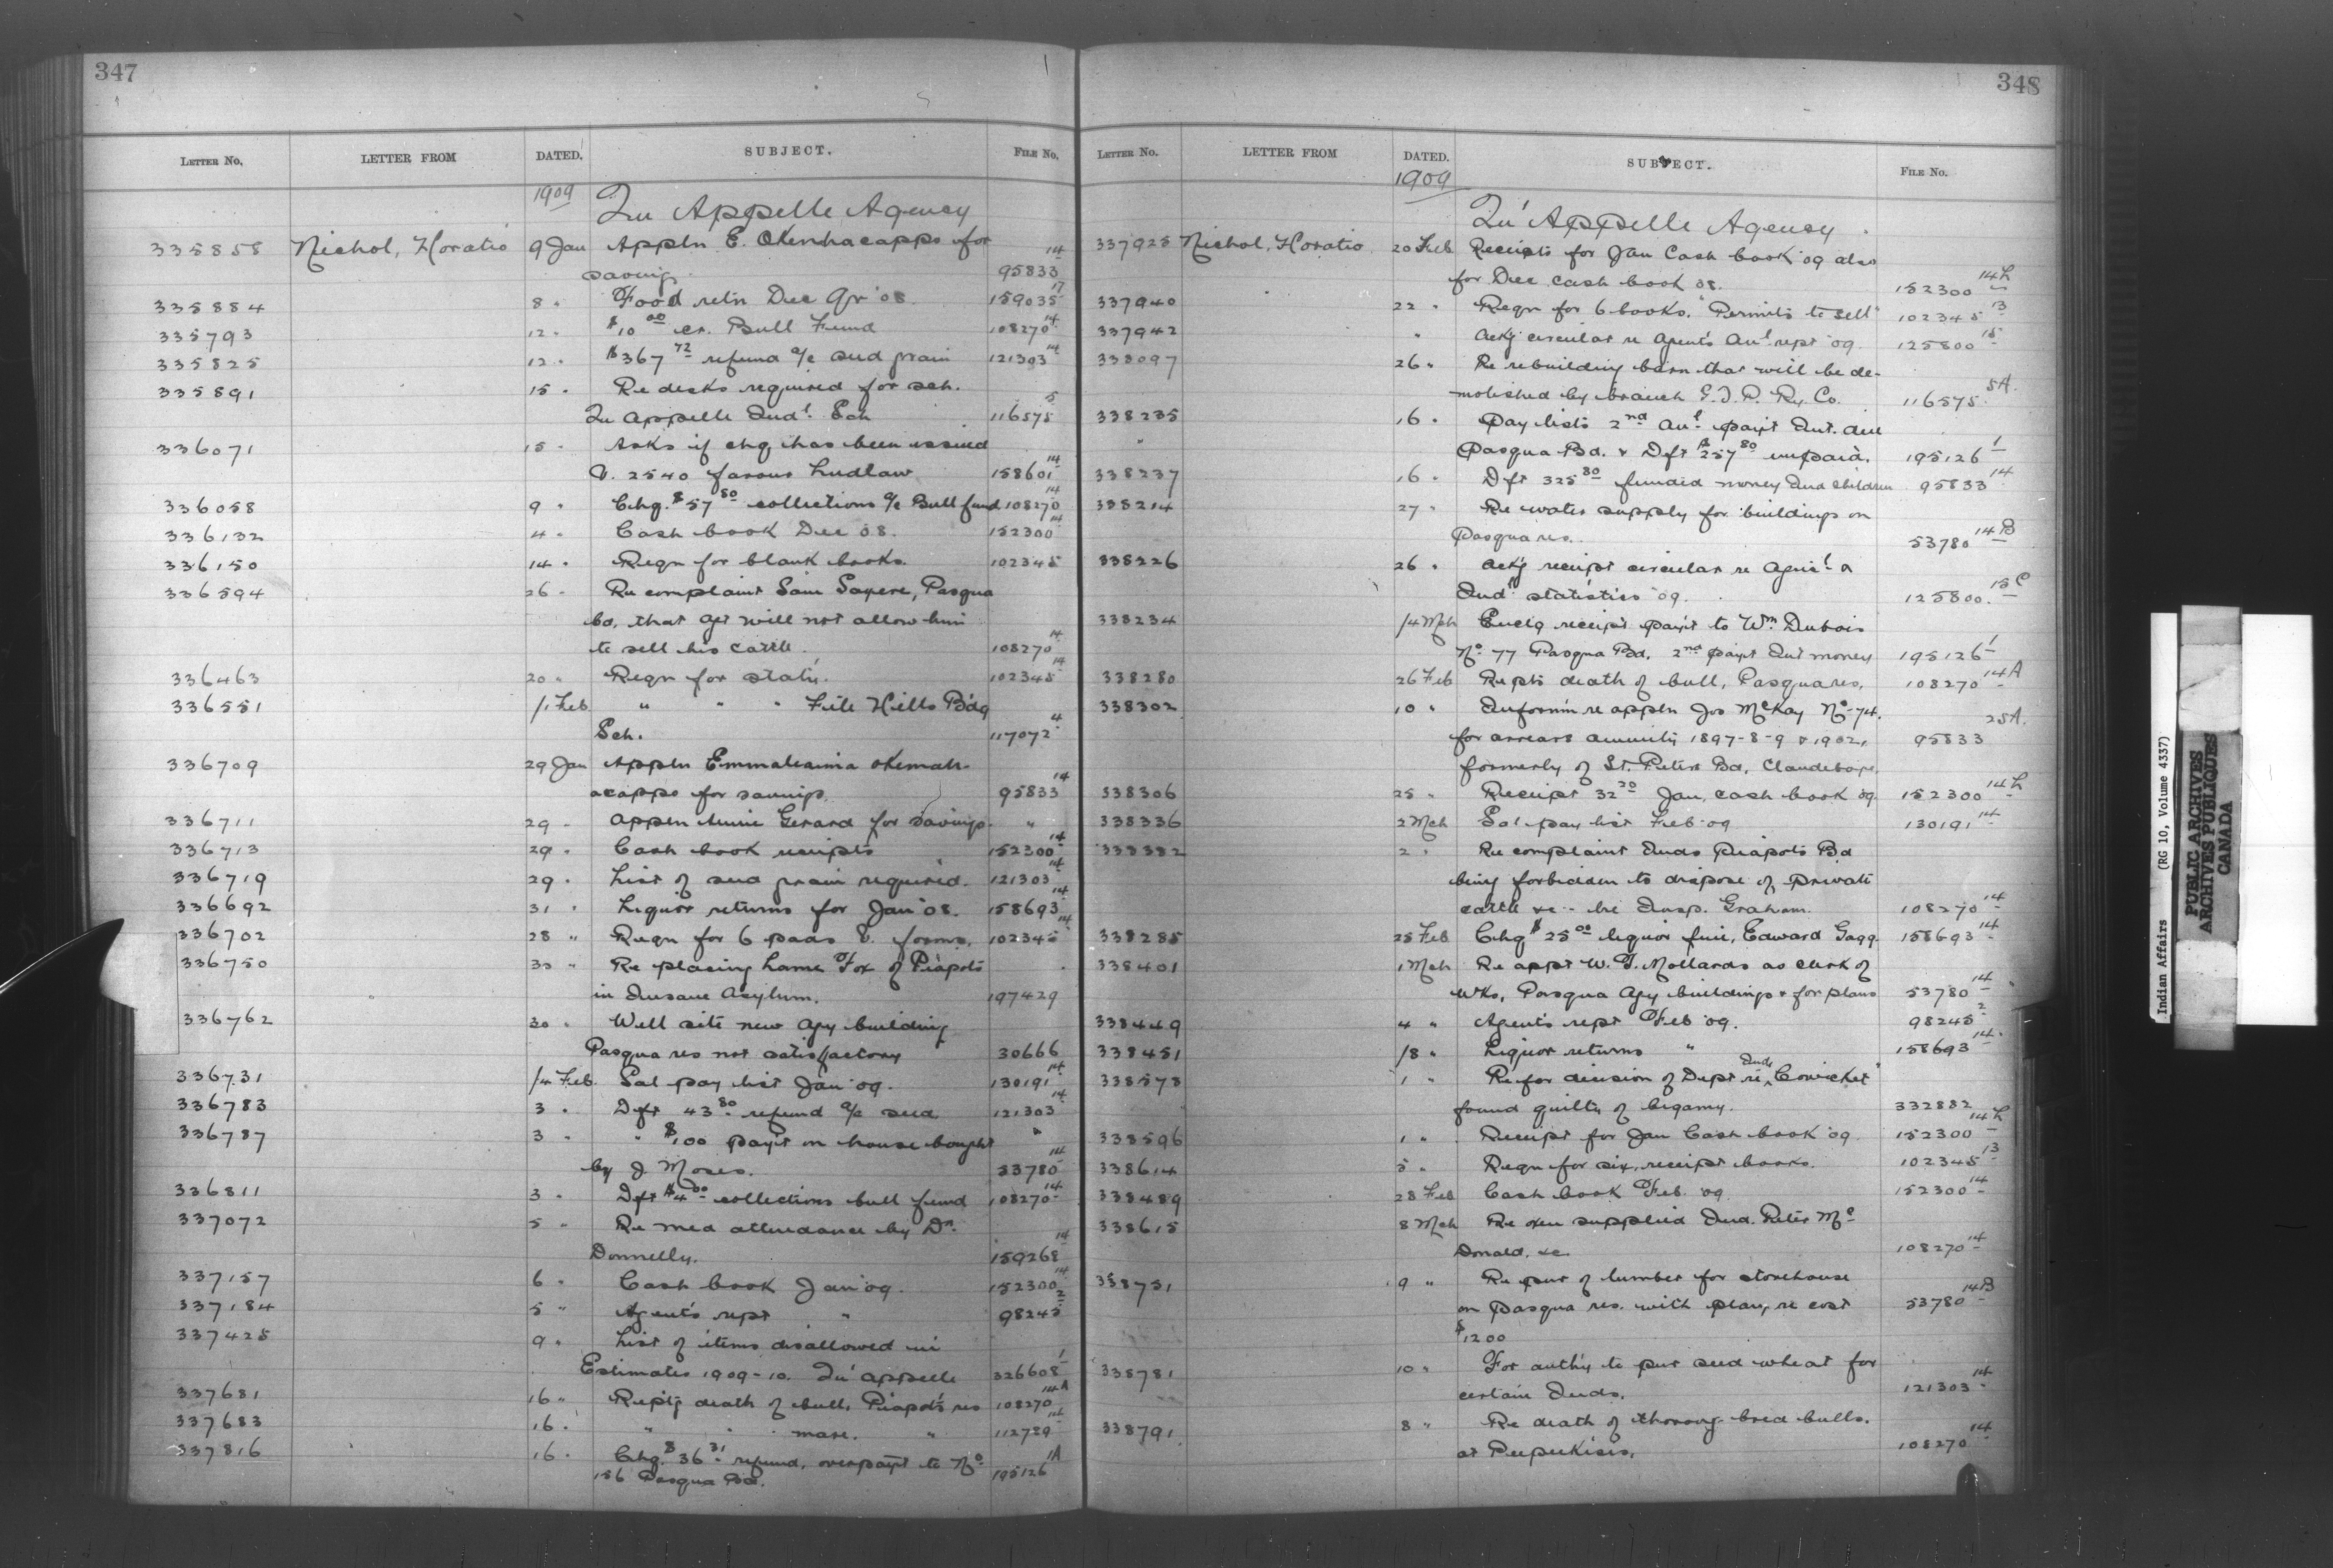 347
LETTER NO. LETTER FROM DATED. SUBJECT. FILE No.
1909 Qu Appelle Agency
335858 Nichol, Horatio 9 Jan Appln E. Okemacapps for
saving. 95833 14
335884 8 " Food retn Dec Qr '08. 159035 17
335793 12 " $10 00 er. Bull Fund 108270 14
335825 12 " $367 72 refund a/c seed grain 121303 14
335891 15 " Re desks required for sch.
Qu Appelle Indl. Sch 116575 5
336071 15 " Asks if chq has been issued
V. 2540 favour Ludlaw 158601 14
336058 9 " Chq. $57 80 collections a/c Bull fund 108270 14
336132 4 " Cash book Dec 08. 152300 14
336150 14 " Reqn for blank books. 102345
336594 26 " Re complaint Sam Sayere, Pasqua
bd, that agt will not allow him
to sell his cattle. 108270 14
336463 20 " Reqn for staty. 102345 14
336551 /1 Feb " " " File Hills Bd'g
Sch. 117072 4
336709 29 Jan Appln Emmaheaima okemah-
acapps for savings. 95833 14
336711 29 " Appln Gerard for savings. "
336713 29 " Cash book receipts 152300 14
336719 29 " List of seed grain required. 121303 14
336692 31 " Liquor returns for Jan '08. 158693 14
336702 28 " Reqn for 6 pads V. forms. 102345 14
336750 30 " Re placing Lame Fox of Piapots
in Insane Asylum. 197429
336762 30 " Well site new agy building
Pasqua res not satisfactory 30666
336731 /4 Feb. Sal pay list Jan '09. 130191 14
336783 3 " Dft 43 80 refund a/c seed 121303 14
336787 3 " " $100 payt on house bought "
by J Moses. 53780 14
336811 3 " Dft $4 00 collections bull fund 108270 14
337072 5 " Re med attendance by Dr.
Donnelly. 159268 14
337157 6 " Cash book Jan '09. 152300 14
337184 5 " Agent's rept " 98245 2
337425 9 " List of items disallowed in
Estimates 1909-10. Qu'appelle 326608 1
337681 16 " Reptg death of bull, Piapot's res 108270 14A
337683 16 " " " mare. " 112729 14
337816 16 " Chq. $36 31 refund, overpayt to No
156 Pasqua Bd. 195126 1A
348
LETTER No. LETTER FROM DATED. SUBJECT. FILE No.
1909 Qu'Appelle Agency
337925 Nichol, Horatio 20 Feb Receipts for Jan Cash book '09 also
for Dec cash book 08. 152300 14h
337940 22 " Reqn for 6 books, "Permits to sell" 102345 13
337942 " Ackg circular re Agent's Anl. rept '09. 125800 15
338097 26 " Re rebuilding barn that will be de-
molished by branch G.T.P. Ry. Co. 116575 5A.
338235 16 " Pay lists 2nd Anl payt Int. due
" Pasqua Bd. & Dft $257 80 unpaid. 195126 1
338237 16 " Dft 325 80 funded money Ind children 95833 14
338214 27 " Re water supply for buildings on
Pasqua res. 53780 14B
338226 26 " Ackg receipt circular re Agricl. &
Indl statistics '09. 125800. 15C
338234 /4 Mch Enclg receipt payt to Wm Dubois
No 77 Pasqua Bd. 2nd payt Int money 195126 1
338280 26 Feb Repts death of bull, Pasqua res. 108270 14A
338302 10 " Informn re appln Jos McKay No-74.
for arrears annuity 1897-8-9 & 1902, 95833 25A.
formerly of St. Peters Bd, Clandeboye.
338306 25 " Receipt 32 20 Jan, cash book 09. 152300 14h
338336 2 Mch Sal pay list Feb 09 130191 14
338382 2 " Re complaint Inds Piapots Bd
being forbidden to dispose of private
cattle &c - by Insp. Graham. 108270 14
338285 25 Feb Chq $25 00 liquor fine, Edward Gagg. 158693 14
338401 1 Mch Re appt W. T. Mollards as clerk of
Wks, Pasqua Agy buildings & for plans 53780 14
338449 4 " Agent's rept Feb '09. 98245 2
338451 /8 " Liquor returns " 158693 14
338573 1 " Re for decision of Dept re Ind "Cowichet"
found guilty of bigamy. 332882
338596 1 " Receipt for Jan Cash book '09. 152300 14h
338614 5 " Reqn for six, receipt books. 102345 13
338489 28 Feb Cash book Feb. '09. 152300 14
338615 8 Mch Re oxen supplied Ind. Peter Mc
Donald, &c. 108270 14
338751 9 " Re pur of lumber for storehouse
on Pasqua res. with plan, re cost 53780 14B
$1200
338781 10 " For authy to pur seed wheat for
certain Inds. 121303 14
338791 8 " Re death of thoroug-bred bulls.
at Peepeekisis. 108270 14
Indian Affairs (RG 10, Volume 4337)
PUBLIC ARCHIVES
ARCHIVES PUBLIQUES
CANADA